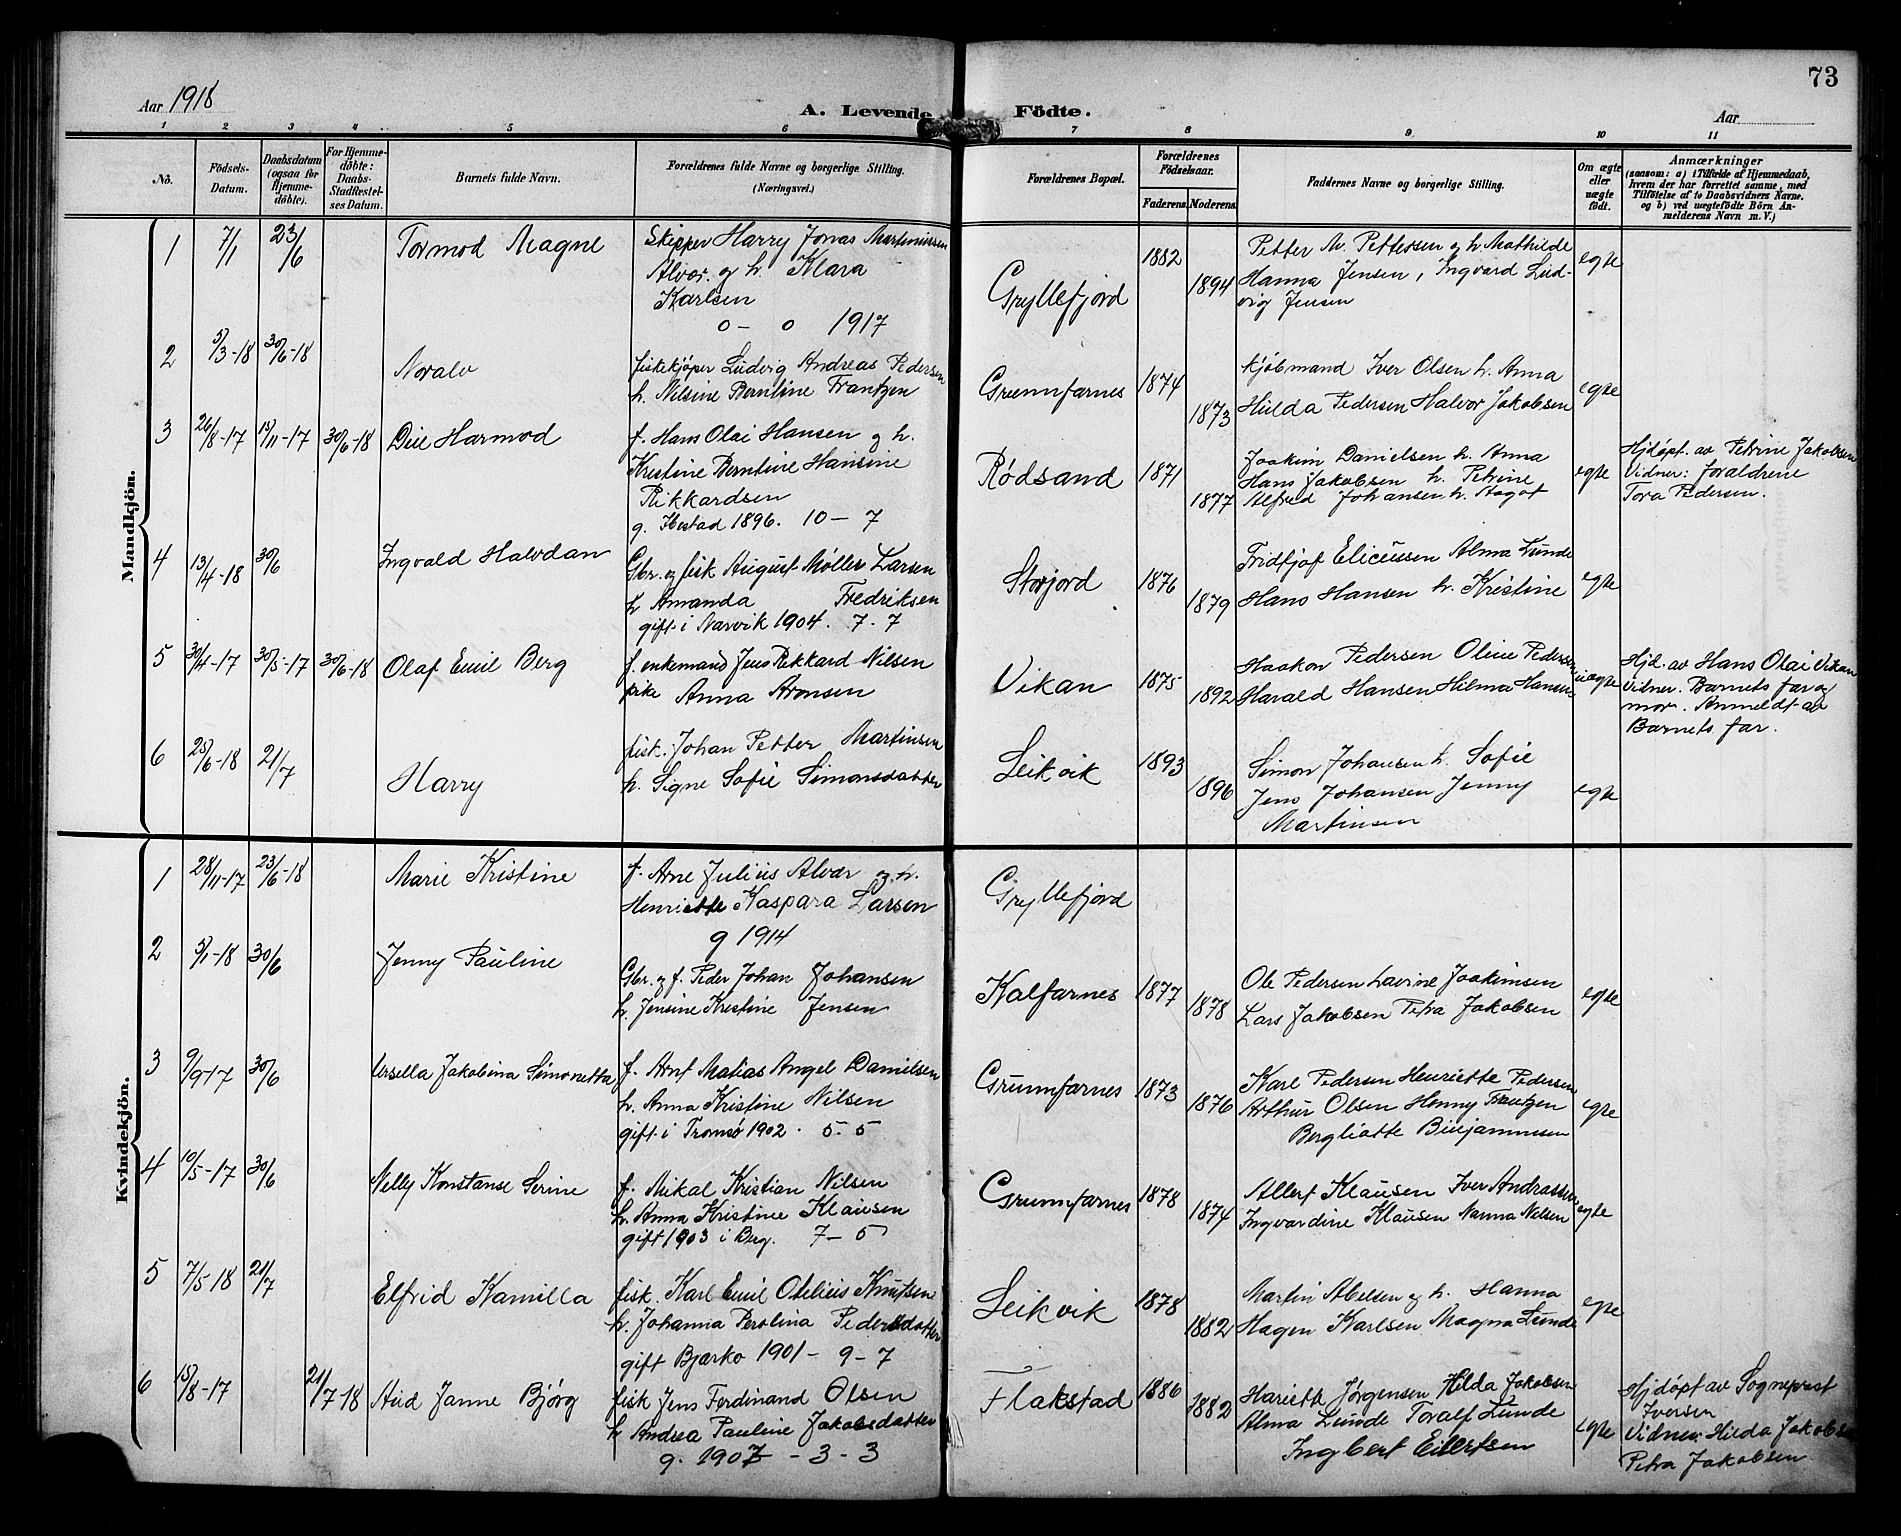 73
Aar 1918
A. Levende Födte.
Aar
1 2 3 4 5 6 7 8 9 10 11
Nô.
Födsels-Datum.
Daabsdatum (ogsaa for Hjemme-döbte).
For Hjemme-döbte: Daabs-Stadfæstel-ses Datum.
Barnets fulde Navn.
Forældrenes fulde Navne og borgerlige Stilling. (Næringsvei.)
Forældrenes Bopæl.
Forældrenes Födselsaar.
Faderens.
Moderens.
Faddernes Navne og borgerlige Stilling.
Om ægte eller uægte födt.
Anmærkninger
(saasom: a) i Tilfælde af Hjemmedaab, hvem der har forrettet samme, med Tilföielse af to Daabsvidners Navne. og b) ved uægtefödte Börn An-melderens Navn m. V.)
Mandkjön.
1 7/1 23/6 Tormod Magne
Skipper Harry Jonas Martinussen
Alvær. og h. Klara
Karlsen
0 – 0 1917
Gryllefjord 1882 1894
Petter M. Pettersen og h. Mathilde
Hanna Jensen, Ingvard Lud-
vig Jensen
egte
2 5/3-18 30/6-18 Noralv
fiskekjöper Ludvig Andreas Pedersen
h. Nilsine Berntine Frantzen
Grunnfarnes 1874 1873
kjöbmand Iver Olsen h. Anna
Hulda Pedersen Halvor Jakobsen
egte
3 26/8-17 15/11-17 30/6-18 Die Harmod
f. Hans Olai Hansen og h.
Kristine Berntine Hansine
Rikkardsen
g. Ibestad 1896. 10 – 7
Rödsand 1871 1877
Joakim Danielsen h. Anna
Hans Jakobsen h. Petrine
Alfred Johansen h. Aagot
egte
Hjdöpt. av Petrine Jakobsen
Vidner: foraldrene
Tora Pedersen.
4 13/4-18 30/6 Ingvald Halvdan
Gbr. og fisk August Møller Larsen
h Amanda Fredriksen
gift i Narvik 1904. 7-7
Storjord 1876 1879
Fridtjof Eliceussen Alma Lunde
Hans Hansen h. Kristine
egte
5 30/4-17 30/5-17 30/6-18 Olaf Emil Berg
f. enkemand Jens Rikkard Nilsen
pike Anna Aronsen
Vikan 1875 1892
Haakon Pedersen Oline Pedersen
Harald Hansen Hilma Hansen
uegte
Hjd. av Hans Olai Vikan
Vidner. Barnets far og
mor. Anmeldt av
Barnets far.
6 25/6-18 21/7 Harry
fisk. Johan Petter Martinsen
h. Signe Sofie Simonsdatter
Leikvik 1893 1896
Simon Johansen h. Sofie
Jens Johansen Jenny
Martinsen
egte
Kvindekjön.
1 28/11-17 23/6-18 Marie Kristine
f. Arne Julius Alvær og h.
Henriette Kaspara Larsen
g 1914
Gryllefjord
2 5/1-18 30/6 Jenny Pauline
Gbr. og f. Peder Johan Johansen
h. Jensine Kristine Jensen
Kalfarnes 1877 1878
Ole Pedersen Lavine Joakimsen
Lars Jakobsen Petra Jakobsen
egte
3 9/9-17 30/6 Ursella Jakobina Simonetta
f. Arnt Matias Angel Danielsen
h. Anna Kristine Nilsen
gift i Tromsö 1902. 5-5
Grunnfarnes 1873 1876
Karl Pedersen Henriette Pedersen
Arthur Olsen Henny Frantzen
Bergliotte Binjaminsen
egte
4 10/5-17 30/6 Nelly Konstanse Serine
f. Mikal Kristian Nilsen
h. Anna Kristine Klausen
gift 1903 i Berg. 7-5
Grunnfarnes 1878 1874
Allert Klausen Iver Andrassen
Ingvardine Klausen Nanna Nilsen
egte
5 7/5 18 21/7 Elfrid Kamilla
fisk. Karl Emil Otelius Knutsen
h. Johanna Perolina Pedersdatter
gift Bjarkö 1901 – 9 – 7
Leikvik 1878 1882
Martin Abelsen og h. Hanna
Hagen Karlsen Magna Lunde
egte
6 15/8-17 21/7 18 Aud Janne Bjórg
fisk Jens Ferdinand Olsen
h Andrea Pauline Jakobsdatter
g. 1907 – 3 – 3
Flakstad 1886 1882
Hariette Jörgensen Hilda Jakobsen
Alma Lunde Toralf Lunde
Ingbert Eilertsen
egte
Hjdöpt av Sogneprest
Iversen
Vidner: Hilda Jakobsen
Petra Jakobsen